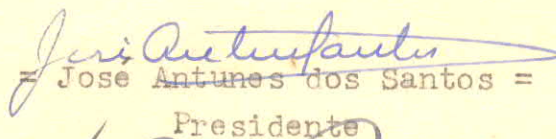 José Antunes Santos
= Jose Antunes dos Santos =
Presidente